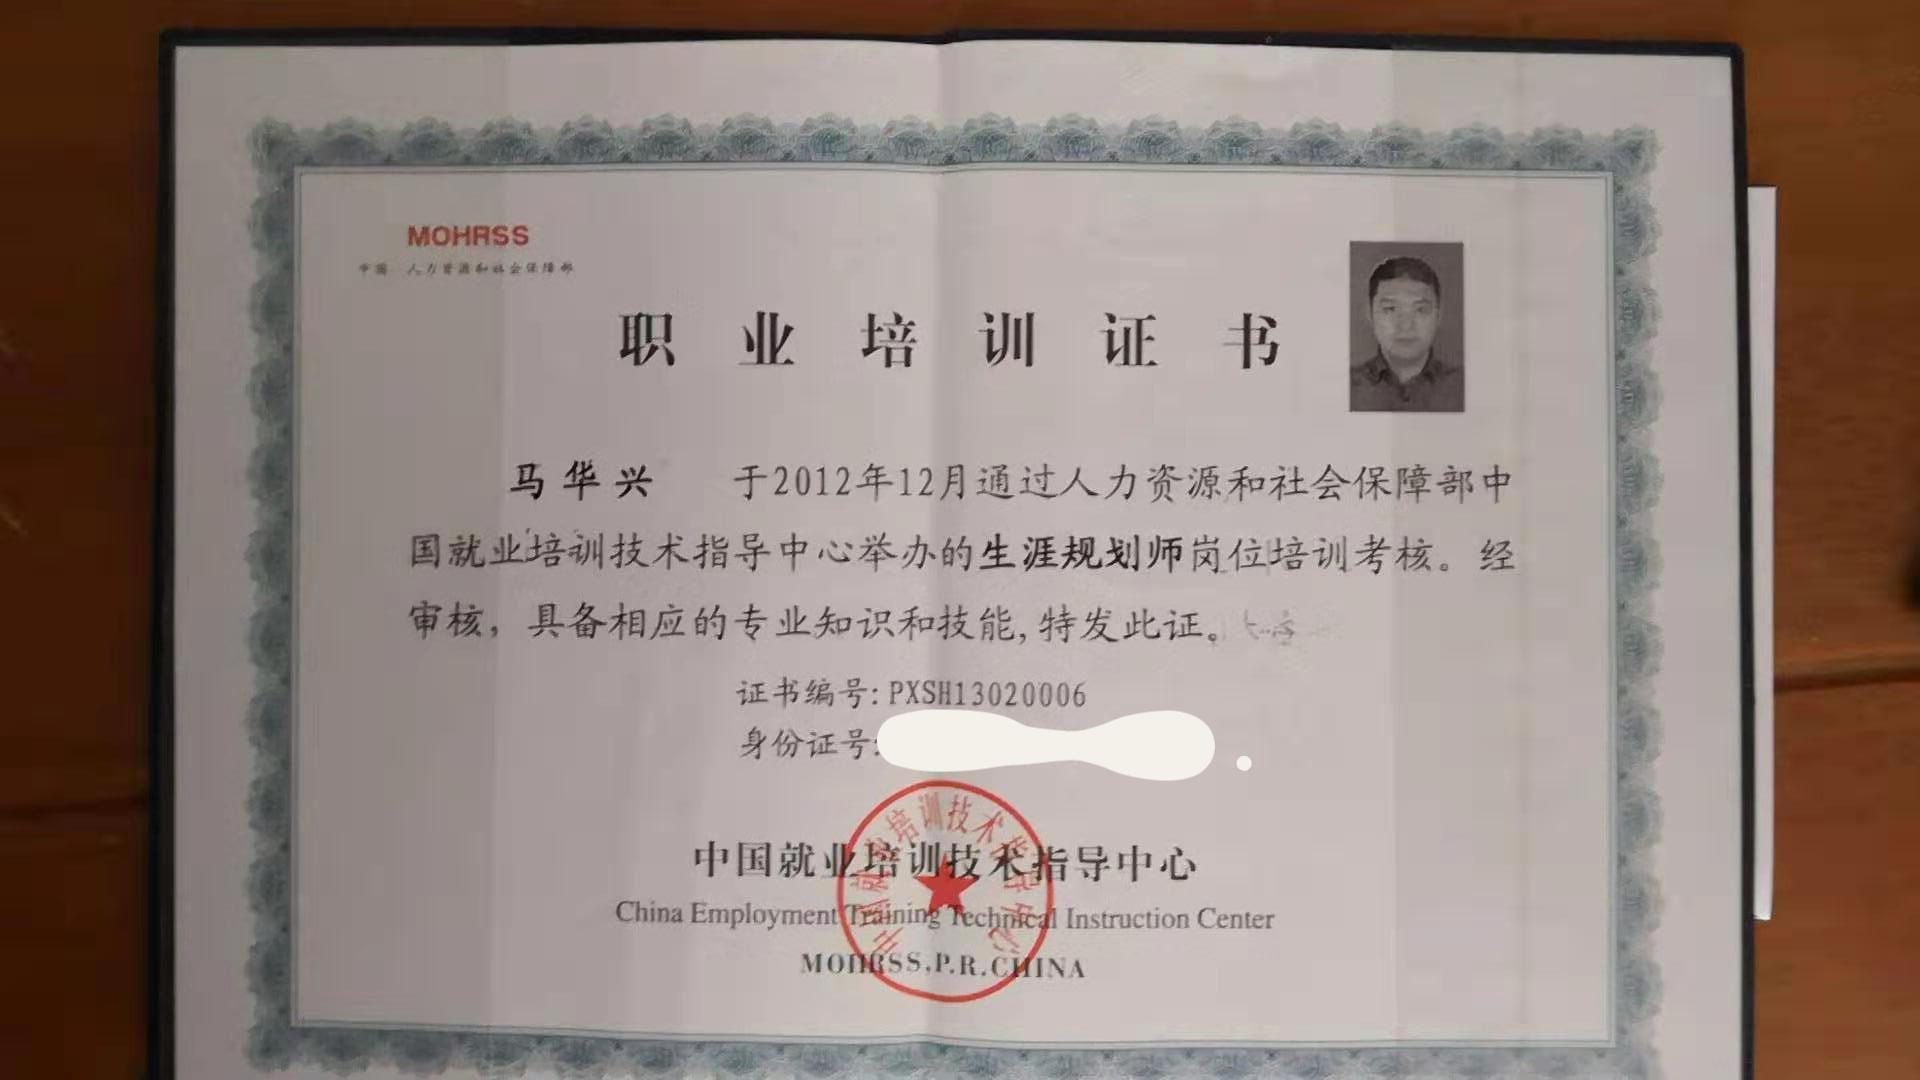 MOHRSS
中国 人力资源和社会保障部
职业培训证书
马华兴 于2012年12月通过人力资源和社会保障部中
国就业培训技术指导中心举办的生涯规划师岗位培训考核。经
审核，具备相应的专业知识和技能，特发此证。
证书编号：PXSH13020006
身份证号：
中国就业培训技术指导中心
China Employment Training Technical Instruction Center
MOHRSS.P.R.CHINA
中国就业培训技术指导中心